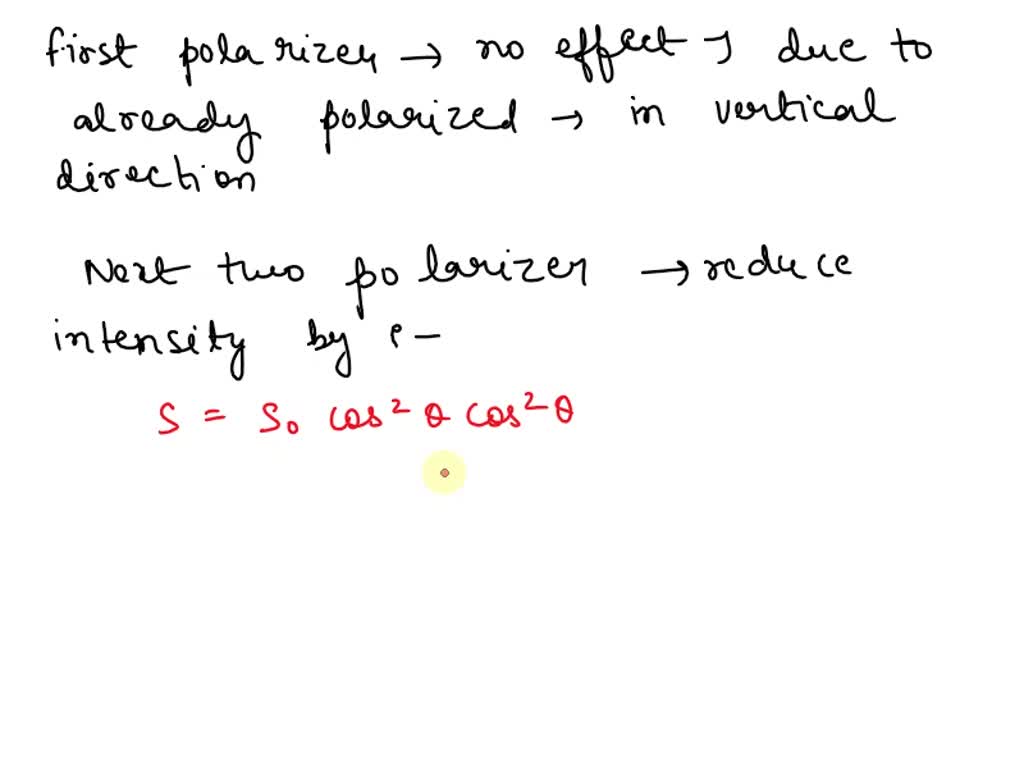 first polarizer → no effect → due to
already polarized → in vertical
direction
Next two polarizer → reduce
intensity by :-
S = S₀ cos² θ cos² θ